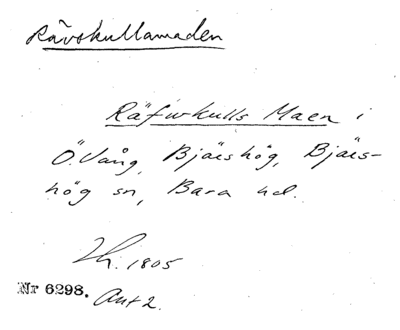 Rävskullamaden
Räfwkulls Maen i
Ö. Vång, Bjäershög, Bjäers-
hög sn, Bara hd.
Lh. 1805
Nr 6298. Akt 2.